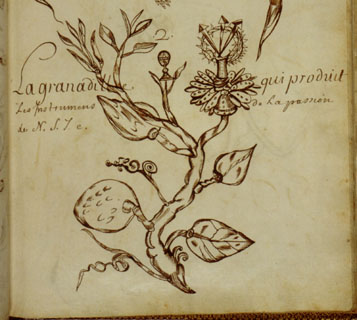 2.
La granadille qui produit
Les Instrumens de la passion
de N. S. J c.